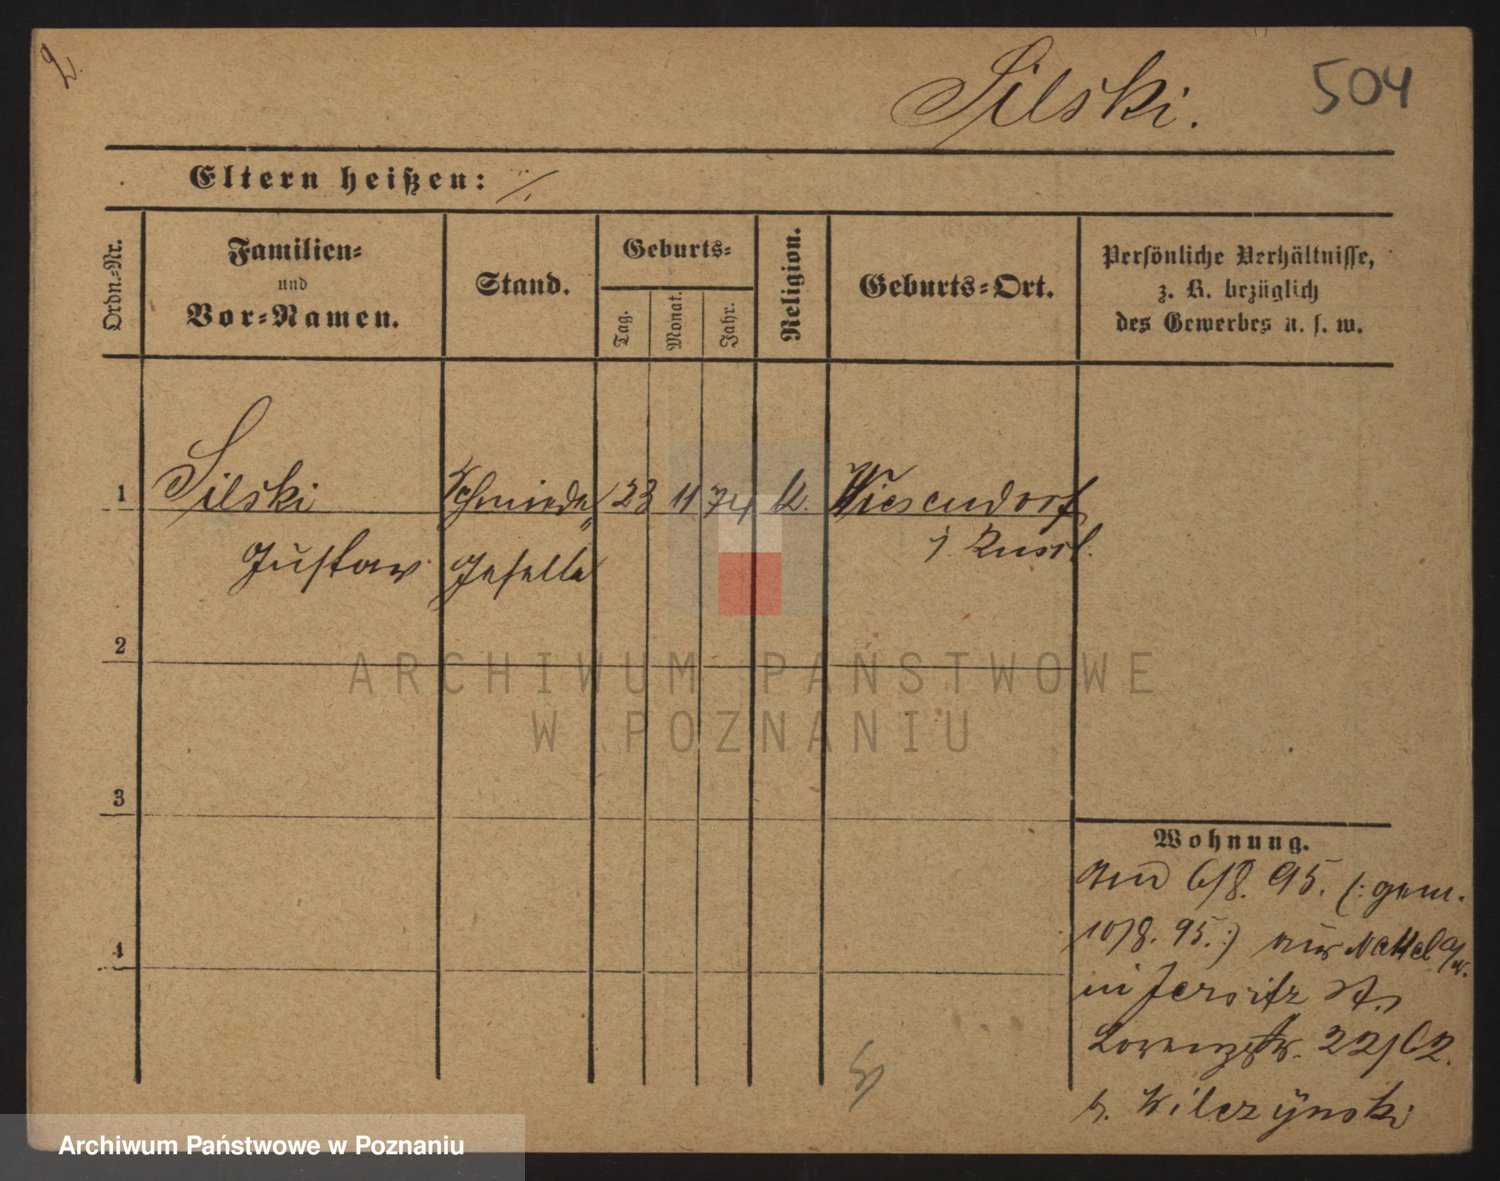 2.
Silski.
504
Eltern heißen: ./.
Ordn.-Nr.
Familien-
und
Vor-Namen.
Stand.
Geburts-
Tag.
Monat.
Jahr.
Religion.
Geburts-Ort.
Persönliche Verhältnisse,
z. B. bezüglich
des Gewerbes u. s. w.
1 Silski Schmiede 23 11 74 Wiesendorf
Gustav Geselle i. Russl.
2
ARCHIWUM PAŃSTWOWE
W POZNANIU
3
Wohnung.
6/8. 95. (: gem.
4
10/8. 95. :) aus
in Jersitz St.
Lorenzstr. 22/62.
b. Wilczynski
Archiwum Państwowe w Poznaniu